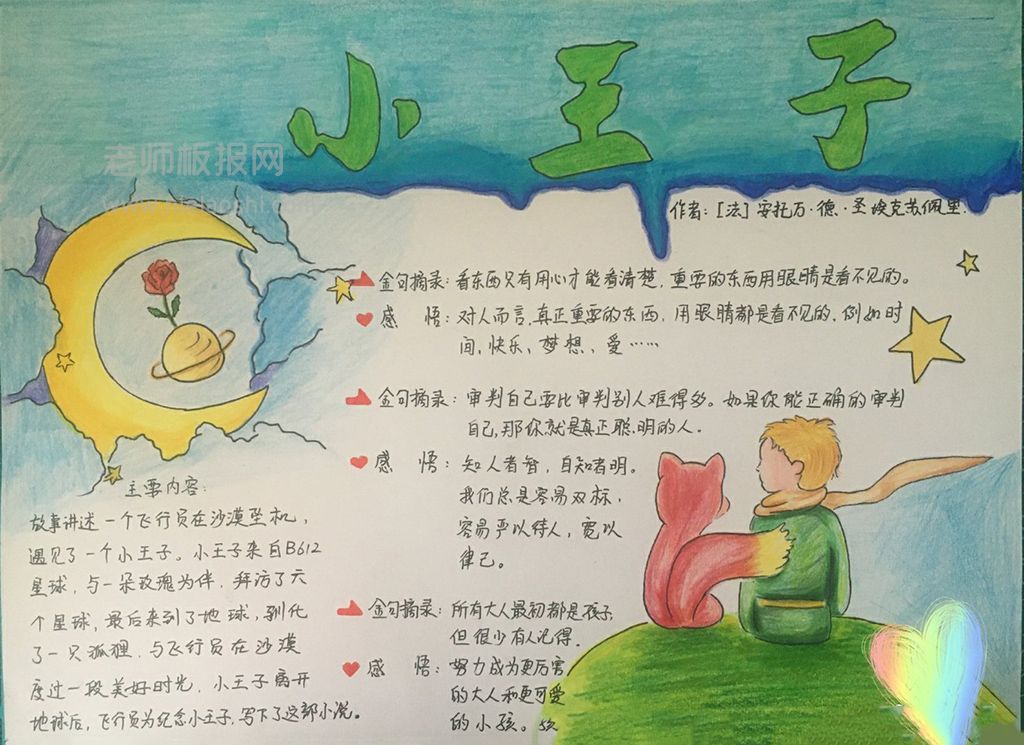 小王子
老师板报网
作者：[法] 安托万·德·圣埃克苏佩里.
金句摘录：看东西只有用心才能看清楚，重要的东西用眼睛是看不见的。
感 悟：对人而言，真正重要的东西，用眼睛都是看不见的，例如时
间，快乐，梦想、爱……
金句摘录：审判自己要比审判别人难得多。如果你能正确的审判
自己，那你就是真正聪明的人。
感 悟：知人者智，自知者明。
我们总是容易双标，
容易严以待人，宽以
律己。
金句摘录：所有大人最初都是孩子，
但很少有人记得.
感 悟：努力成为更厉害
的大人和更可爱
的小孩。
主要内容：
故事讲述一个飞行员在沙漠坠机，
遇见了一个小王子。小王子来自B612
星球，与一朵玫瑰为伴，拜访了六
个星球，最后来到了地球，驯化
了一只狐狸，与飞行员在沙漠
度过一段美好时光，小王子离开
地球后，飞行员为纪念小王子，写下了这部小说。